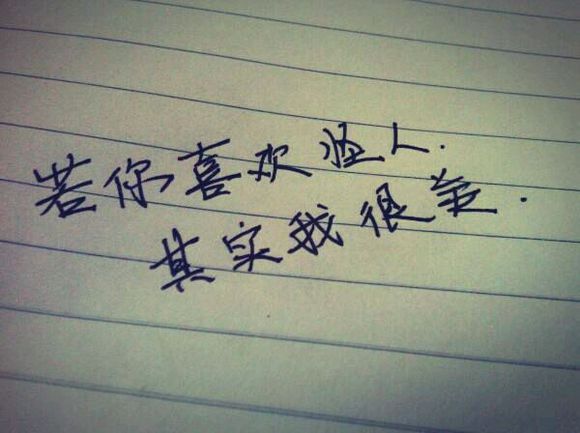 若你喜欢怪人.
其实我很美.